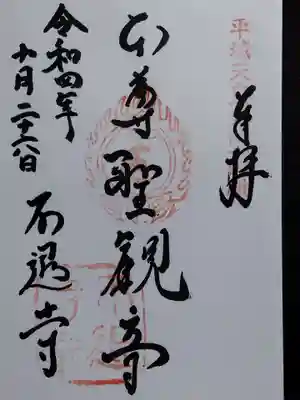 奉拝
本尊聖観音
不退寺
令和四年
十月二十六日